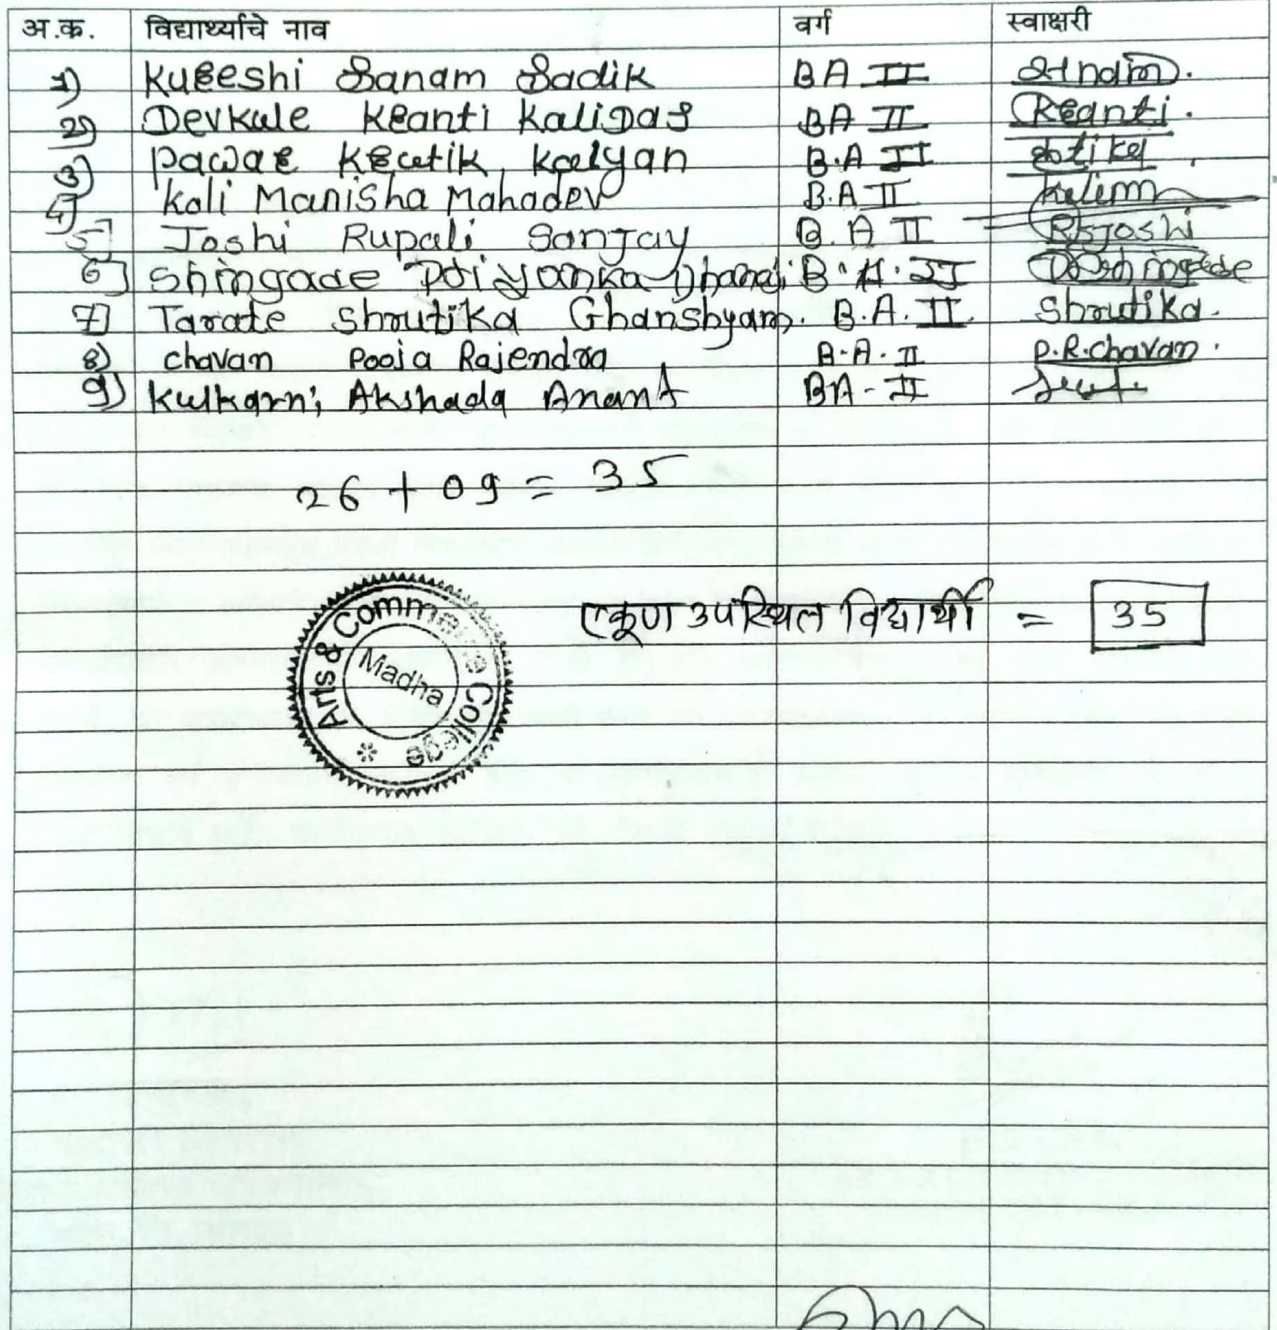 अ.क. विद्यार्थ्याचे नाव वर्ग स्वाक्षरी
1) Kureshi Sanam Sadik BA II
2) Devkule Kranti Kalidas BA II Kranti.
3) Pawar Krutik Kalyan B.A II
4) Koli Manisha Mahadev B.A II
5] Joshi Rupali Sanjay B.A II RSJoshi
6] Shingade Priyanka Dhanaji B.A. II PDShingade
7] Tarate Shrutika Ghanshyam. B.A. II. Shrutika.
8) Chavan Pooja Rajendra B.A. II P.R.chavan.
9) Kulkarni Akshada Anant BA-II
26 + 09 = 35
एकूण उपस्थित विद्यार्थी = 35
Arts & Commerce College
Madha